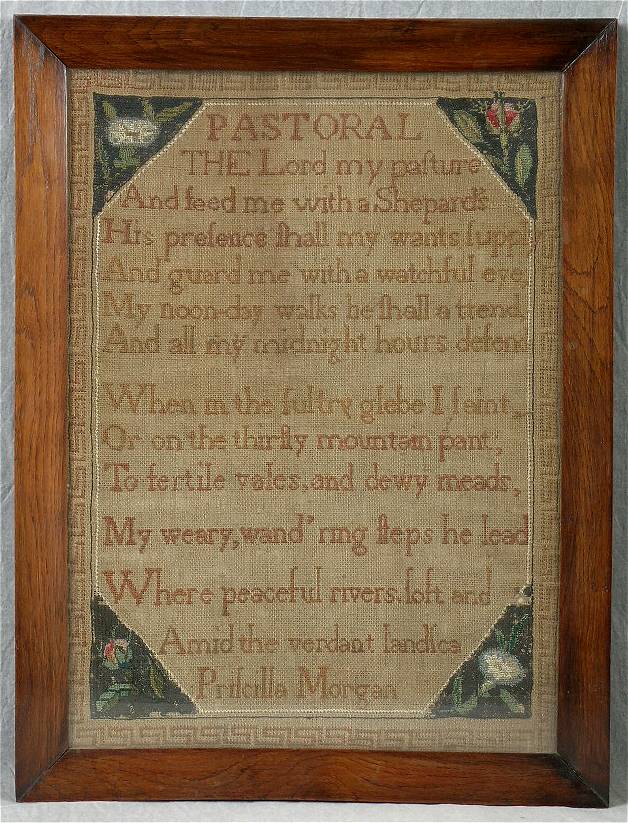 PASTORAL
THE Lord my paſture
And feed me with a Shepard's
His preſence ſhall my wants ſupp
And guard me with a watchful eye,
My noon-day walks he ſhall attend
And all my midnight hours defend
When in the ſultry glebe I faint,
Or on the thirſty mountain pant,
To fertile vales, and dewy meads,
My weary, wand'ring ſteps he lead
Where peaceful rivers, ſoft and
Amid the verdant landſca
Priſcilla Morgan